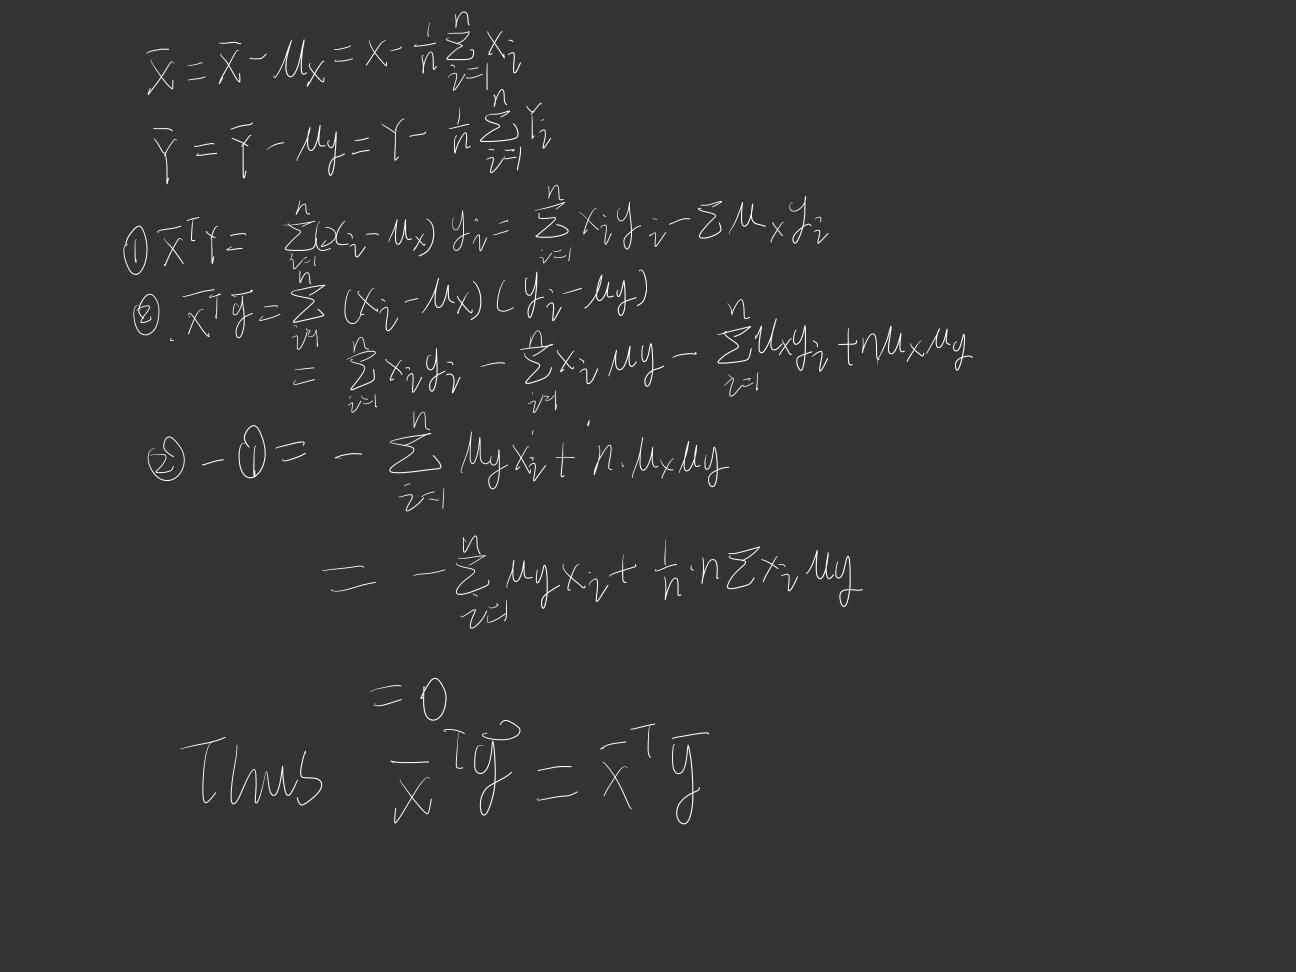 x̄ = x̄ - μx = x - 1/n ∑_{i=1}^{n} x_i
Ȳ = Ȳ - μy = Y - 1/n ∑_{i=1}^{n} Y_i
① x̄^T Y = ∑_{i=1}^{n} (x_i - μx) y_i = ∑_{i=1}^{n} x_i y_i - ∑ μx y_i
②. x̄^T ȳ = ∑_{i=1}^{n} (x_i - μx) (y_i - μy)
= ∑_{i=1}^{n} x_i y_i - ∑_{i=1}^{n} x_i μy - ∑_{i=1}^{n} μx y_i + nμxμy
② - ① = - ∑_{i=1}^{n} μy x_i + n·μxμy
= - ∑_{i=1}^{n} μy x_i + 1/n · n ∑ x_i μy
= 0
Thus x̄^T ȳ = x̄^T ȳ